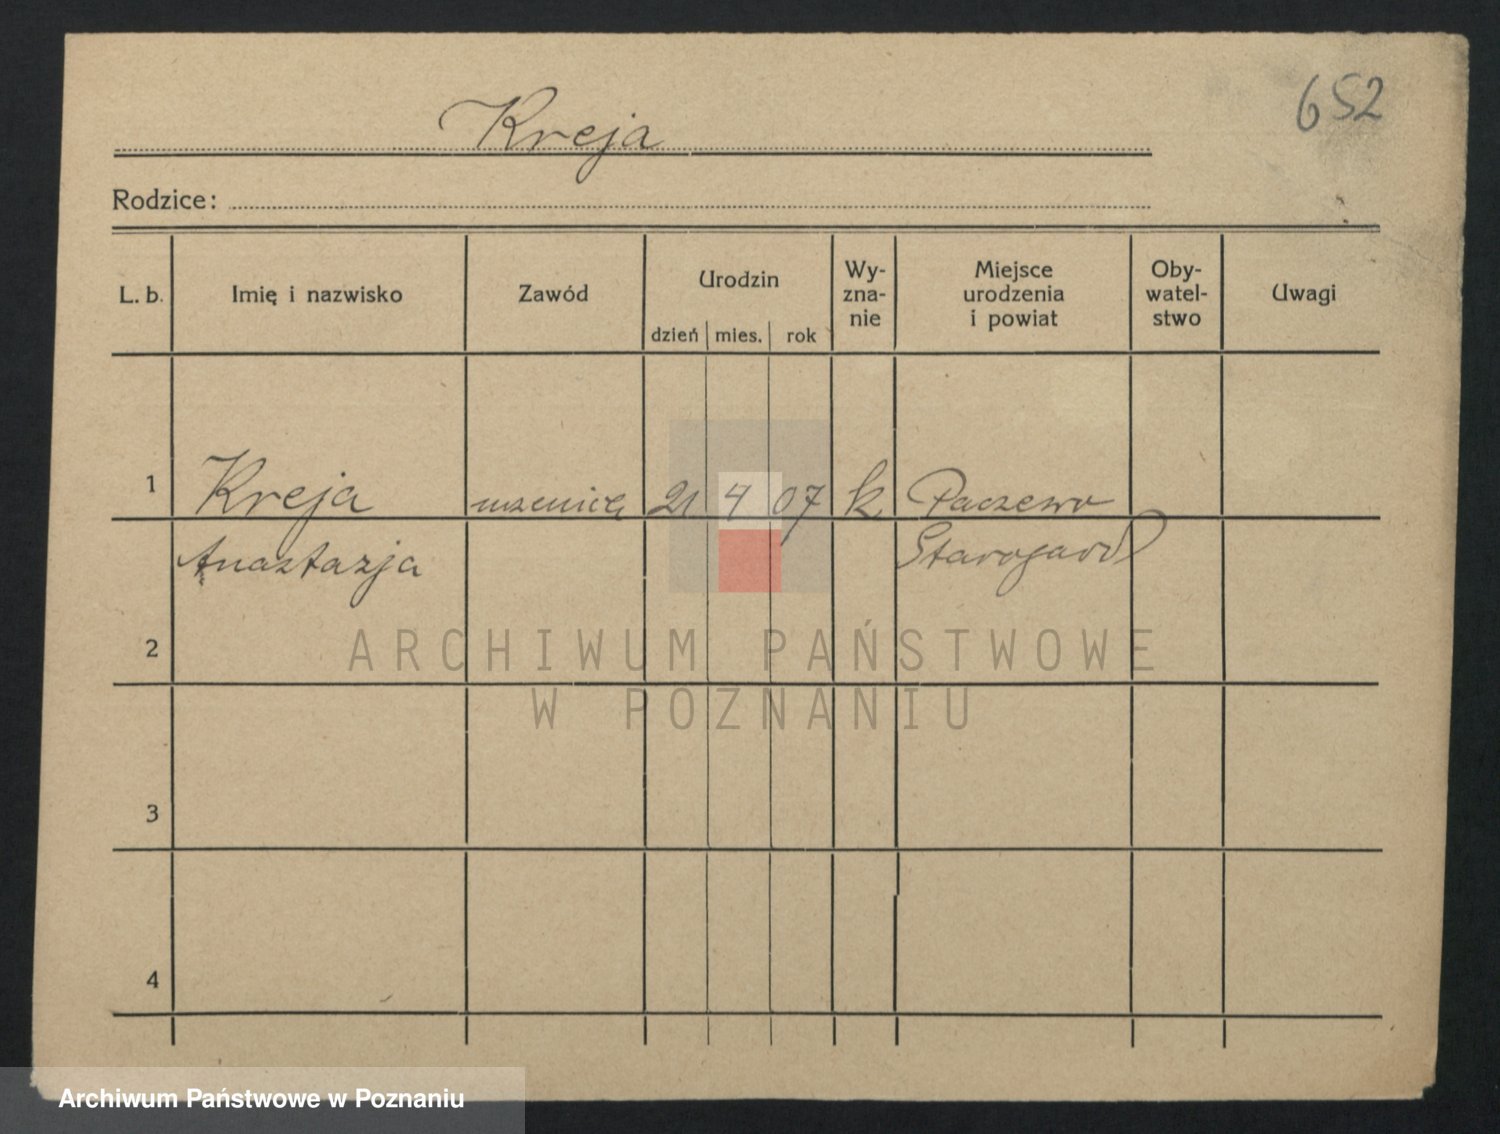 652
Kreja
Rodzice:
L. b.
Imię i nazwisko
Zawód
Urodzin
dzień mies. rok
Wy-
zna-
nie
Miejsce
urodzenia
i powiat
Oby-
watel-
stwo
Uwagi
1 Kreja 21 4 07 k Paczewo
Anastazja Starogard
2
3
4
ARCHIWUM PAŃSTWOWE
W POZNANIU
Archiwum Państwowe w Poznaniu